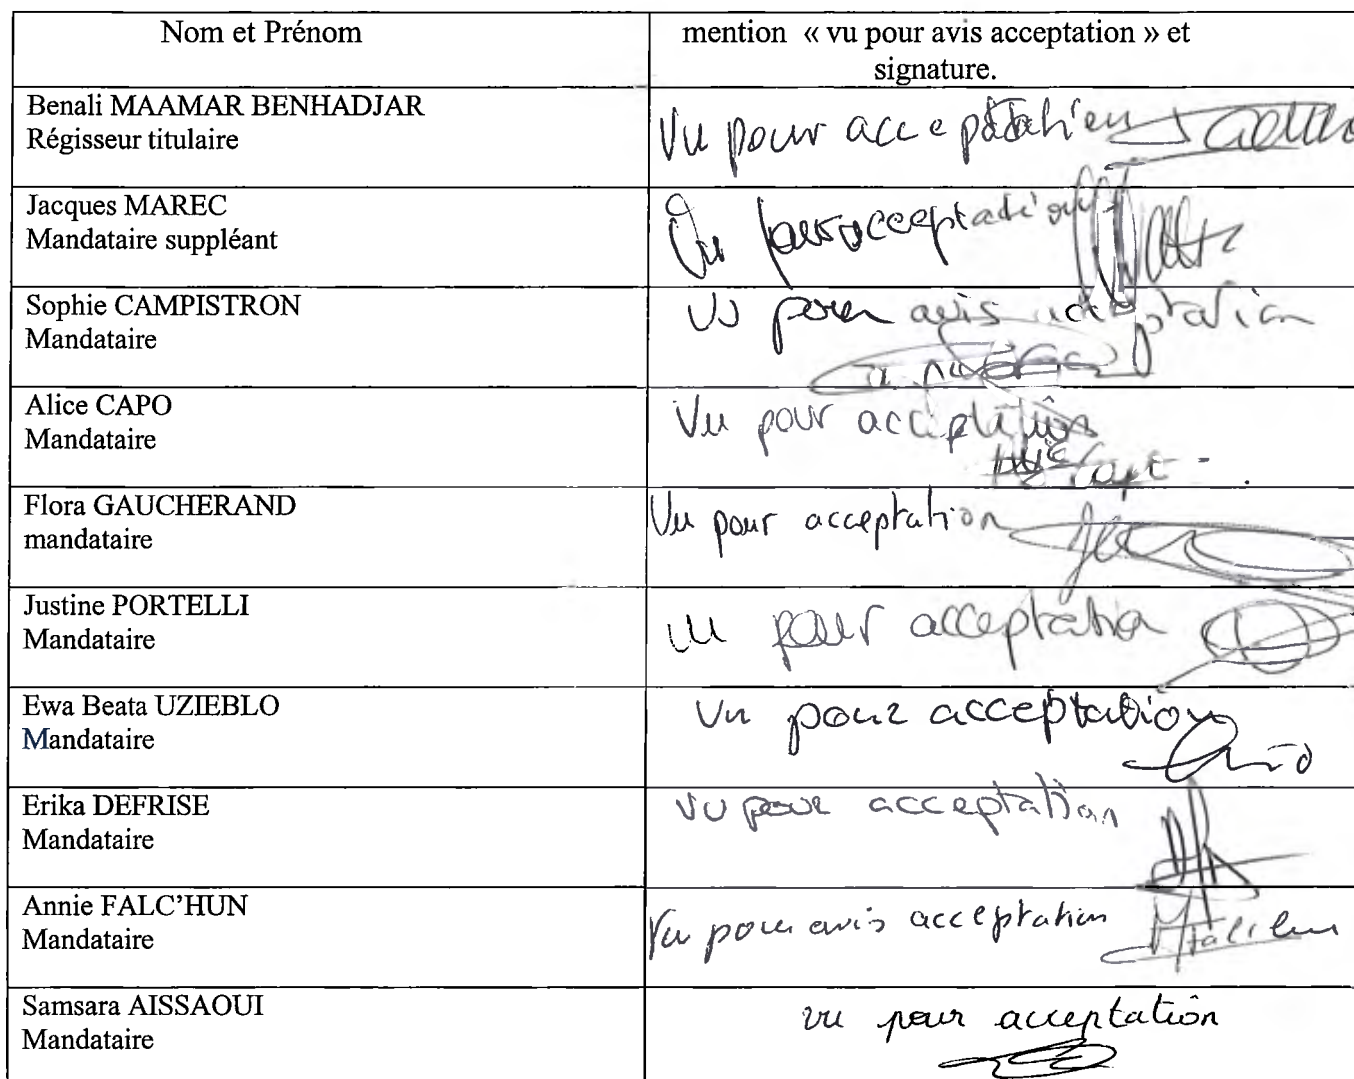 Nom et Prénom
mention « vu pour avis acceptation » et
signature.
Benali MAAMAR BENHADJAR
Régisseur titulaire
Vu pour acceptation
Jacques MAREC
Mandataire suppléant
Vu pour acceptation
Sophie CAMPISTRON
Mandataire
Vu pour avis acceptation
Alice CAPO
Mandataire
Vu pour acceptation
Flora GAUCHERAND
mandataire
Vu pour acceptation
Justine PORTELLI
Mandataire
vu pour acceptation
Ewa Beata UZIEBLO
Mandataire
Vu pour acceptation
Erika DEFRISE
Mandataire
Vu pour acceptation
Annie FALC'HUN
Mandataire
Vu pour avis acceptation
Samsara AISSAOUI
Mandataire
vu pour acceptation